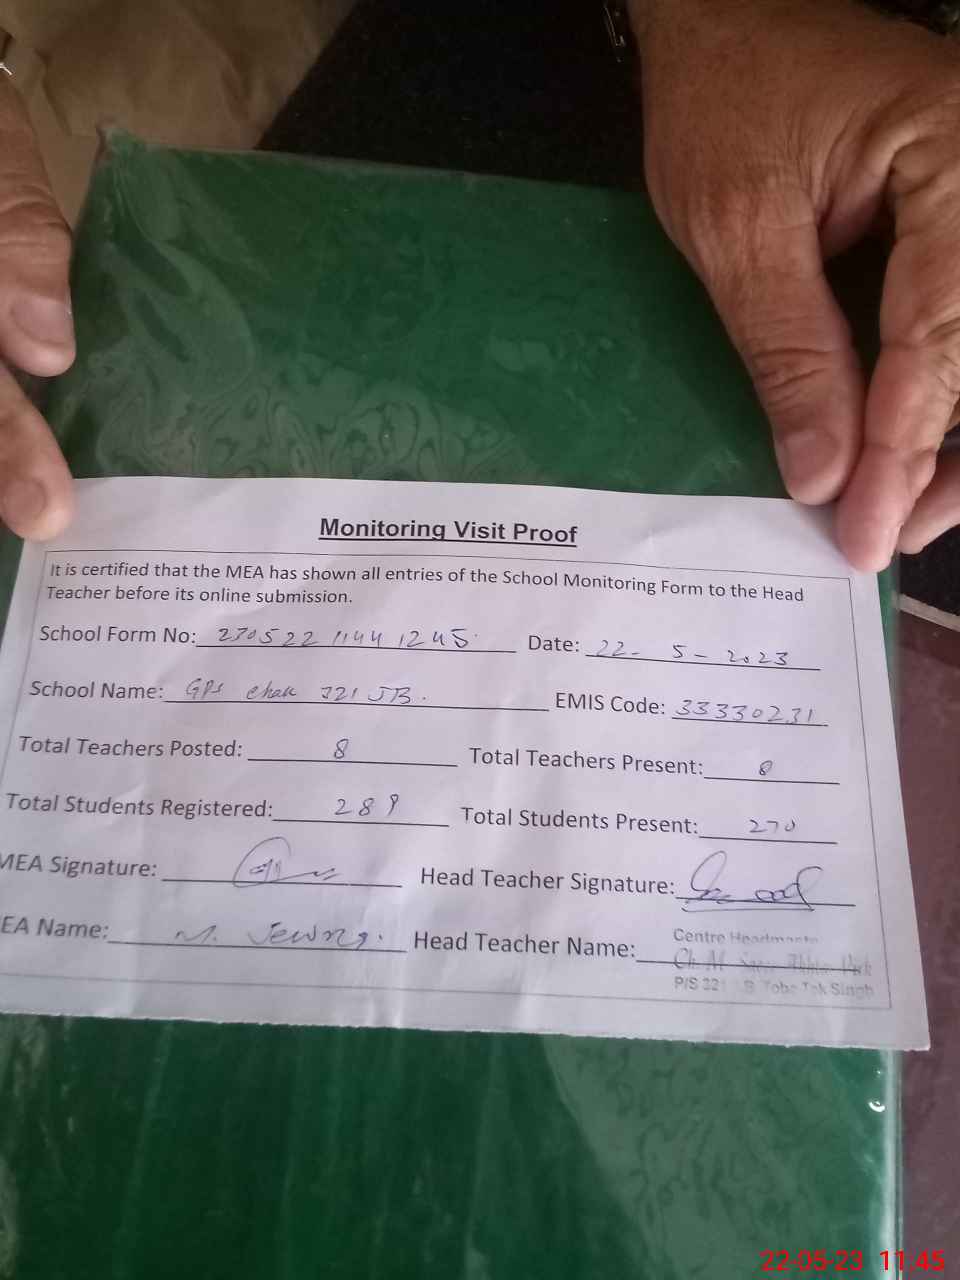 Monitoring Visit Proof
It is certified that the MEA has shown all entries of the School Monitoring Form to the Head
Teacher before its online submission.
School Form No: 270522 1144 1245 Date: 22- 5-2023
School Name: GPS Chak 321 JB. EMIS Code: 33330231
Total Teachers Posted: 8 Total Teachers Present: 8
Total Students Registered: 289 Total Students Present: 270
MEA Signature: Head Teacher Signature:
EA Name: M. Head Teacher Name:
Centre
Ch. M
P/S 321 B Toba Tek Singh
22-05-23 11:45